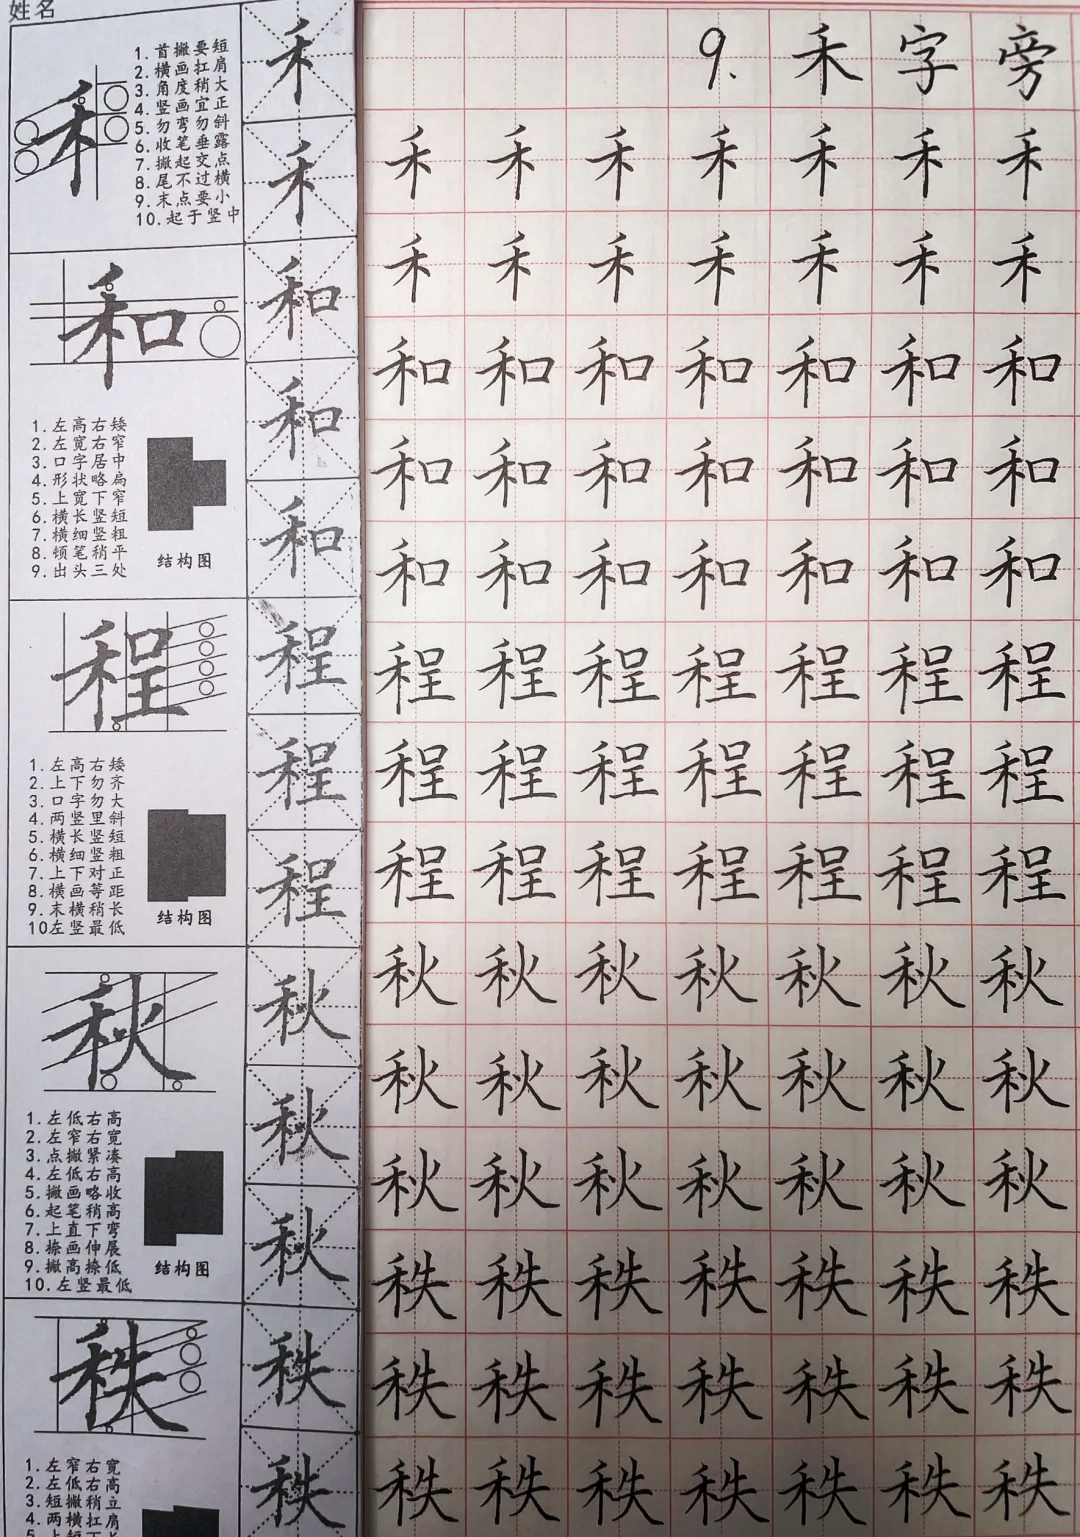 姓名
禾
1.首撇要短
2.横画扛肩
3.角度稍大
4.竖画宜正
5.勿弯勿斜
6.收笔垂露
7.撇起交点
8.尾不过横
9.末点要小
10.起于竖中
和
1.左高右矮
2.左宽右窄
3.口字居中
4.形状略扁
5.上宽下窄
6.横长竖短
7.横细竖粗
8.顿笔稍平
9.出头三处
结构图
程
1.左高右矮
2.上下勿齐
3.口字勿大
4.两竖里斜
5.横长竖短
6.横细竖粗
7.上下对正
8.横画等距
9.末横稍长
10左竖最低
结构图
秋
1.左低右高
2.左窄右宽
3.点撇紧凑
4.左低右高
5.撇画略收
6.起笔稍高
7.上直下弯
8.捺画伸展
9.撇高捺低
10.左竖最低
结构图
秩
1.左窄右宽
2.左低右高
3.短撇稍立
4.两横扛肩
5.上短下
禾
禾
和
和
和
程
程
程
秋
秋
秋
秩
秩
9. 禾 字 旁
禾 禾 禾 禾 禾 禾 禾
禾 禾 禾 禾 禾 禾 禾
和 和 和 和 和 和 和
和 和 和 和 和 和 和
和 和 和 和 和 和 和
程 程 程 程 程 程 程
程 程 程 程 程 程 程
程 程 程 程 程 程 程
秋 秋 秋 秋 秋 秋 秋
秋 秋 秋 秋 秋 秋 秋
秋 秋 秋 秋 秋 秋 秋
秩 秩 秩 秩 秩 秩 秩
秩 秩 秩 秩 秩 秩 秩
秩 秩 秩 秩 秩 秩 秩